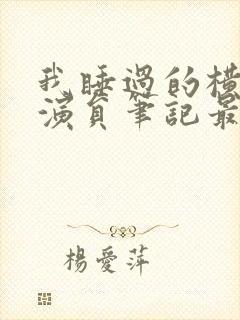 我睡過的橫
演員筆記最
楊愛萍